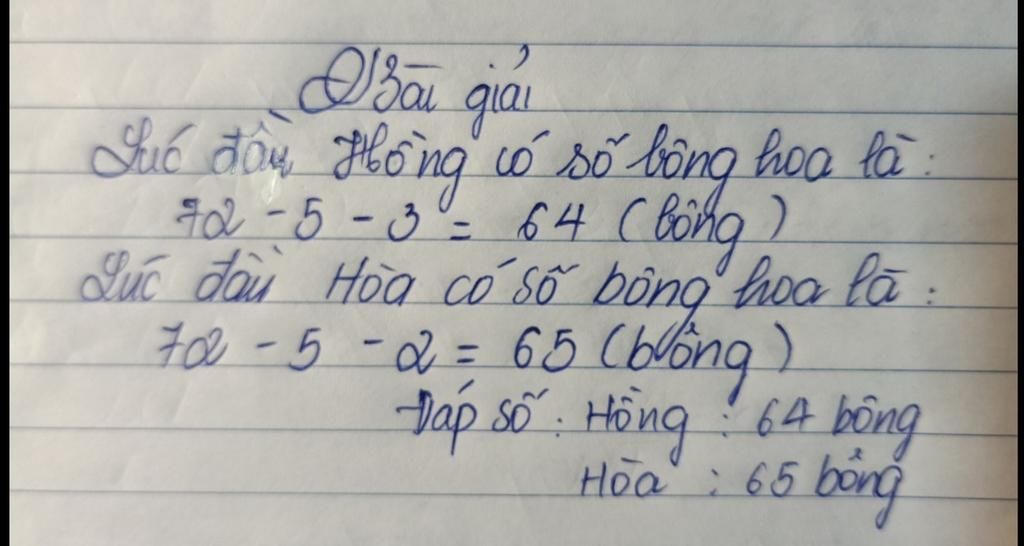 Bài giải
Lúc đầu Hồng có số bông hoa là:
72 - 5 - 3 = 64 (bông)
Lúc đầu Hòa có số bông hoa là:
72 - 5 - 2 = 65 (bông)
Đáp số: Hồng: 64 bông
Hòa: 65 bông